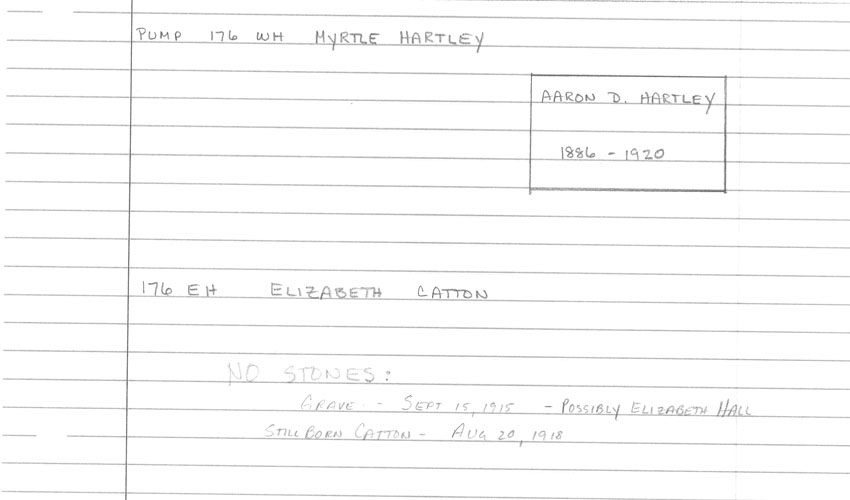 PUMP 176 WH MYRTLE HARTLEY
AARON D. HARTLEY
1886 - 1920
176 EH ELIZABETH CATTON
NO STONES:
GRAVE - SEPT 15, 1915 - POSSIBLY ELIZABETH HALL
STILLBORN CATTON - AUG 20, 1918